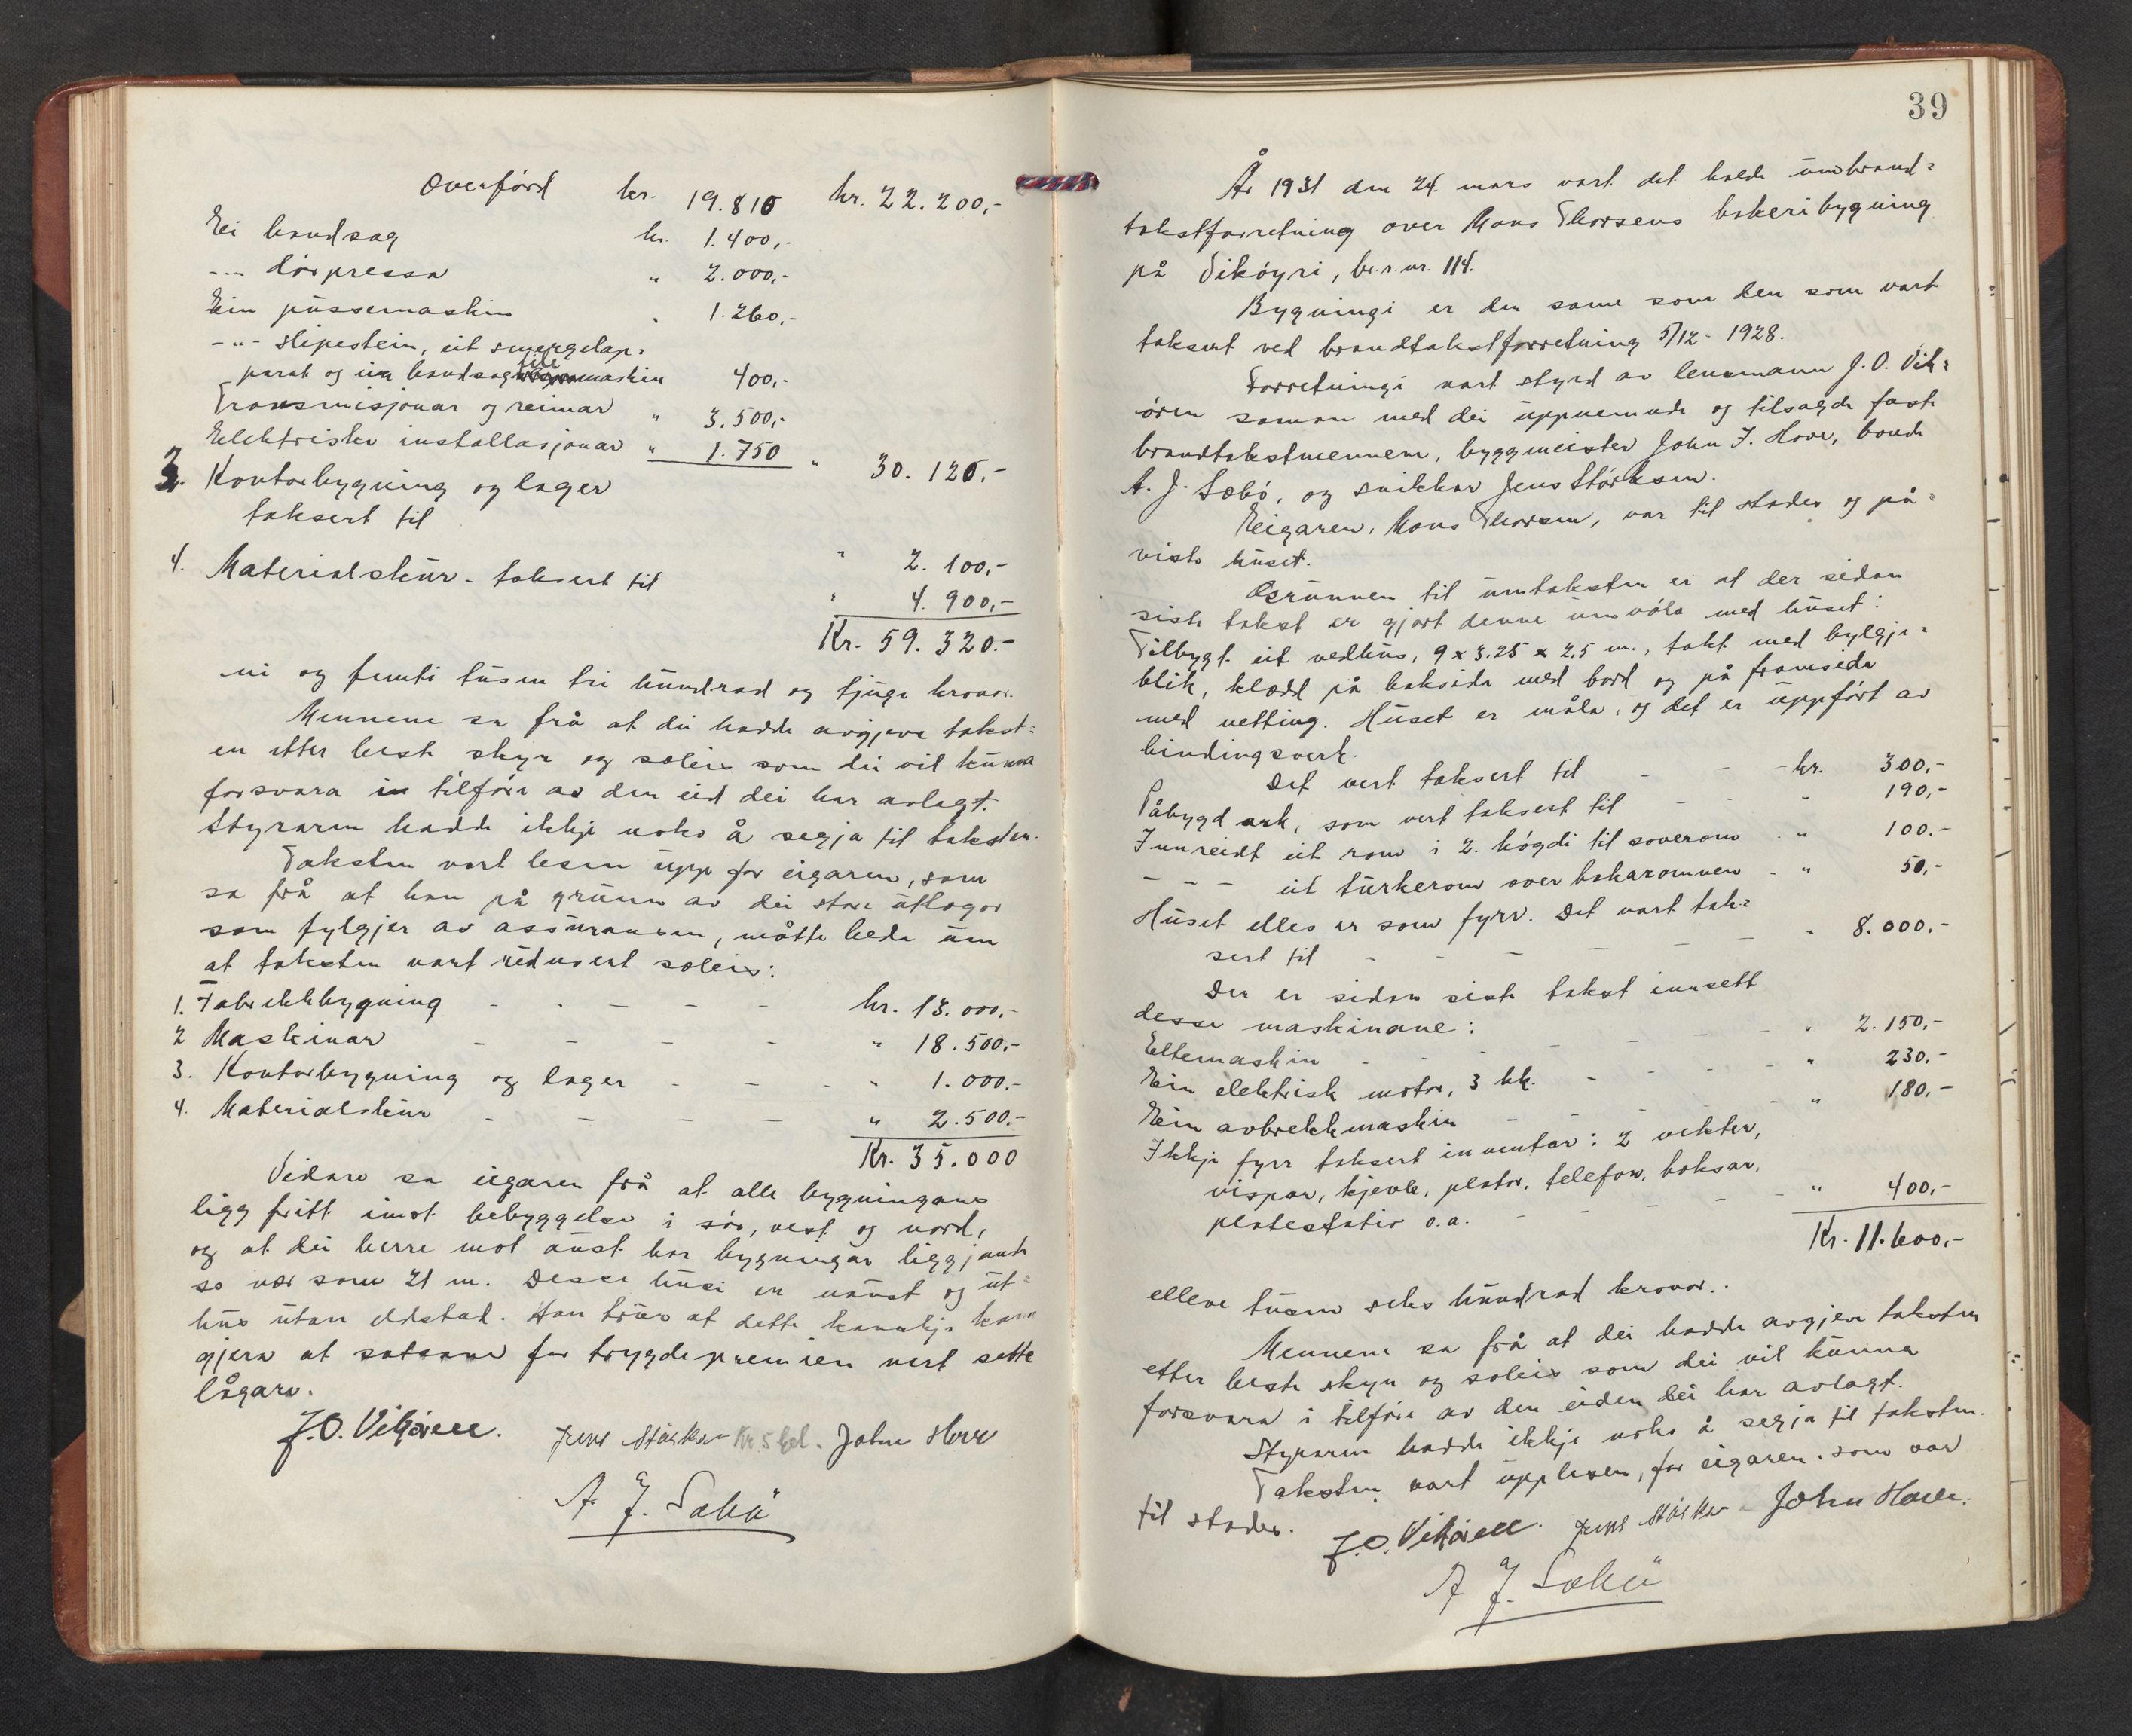 Overförd kr. 19.810 kr. 22.200,-
Ei bandsag kr. 1.400,-
-"- dörpressa " 2.000,-
Ein pussemaskin " 1.260,-
-"- slipestein, eit smergelap=
parat og ein bandsagfilemaskin 400,-
Transmisjonar og reimar " 3.500,-
Elektriske installasjonar " 1.750 " 30.120,-
3. Kontorbygning og lager
taksert til " 2.100,-
4. Materialskur - taksert til " 4.900,-
Kr. 59.320.-
ni og femti tusen tri hundrad og tjuge kronor.
Mennene sa frå at dei hadde avgjeve takst=
en etter beste skyn og soleis som dei vil kunna
forsvara in tilföre av den eid dei har avlagt.
Styraren hadde ikkje noko å segja til taksten.
Taksten vart lesen upp for eigaren, som
sa frå at han på grunn av dei store utlogor
som fylgjer av assuransen, måtte beda um
at taksten vart redusert soleis:
1. Fabrikkbygning - - - - - kr. 13.000,-
2 Maskinar - - - - " 18.500,-
3. Kontorbygning og lager - - - " 1.000.-
4. Materialskur - - - - " 2.500.-
Kr. 35.000
Vidare sa eigaren frå at alle bygningane
ligg fritt imot bebyggelse i sör, vest og nord,
og at dei berre mot aust har bygningar liggjande
so nær som 21 m. Desse husi er naust og ut=
hus utan eldstad. Han trur at dette kanskje kann
gjera at satsane for trygdepremien vert sette
lågare.
J.O. Vikören. Jens Stórksen John Hove
A. J. Sæbö
39
År 1931 den 24. mars vart det halde umbrand=
takstforretning over Mons Thorsens bakeribygning
på Viköyri, br.s.nr. 114.
Bygningi er den same som den som vart
taksert ved brandtakstforretning 5/12- 1928.
Forretningi vart styrd av lensmann J.O. Vik=
ören saman med dei uppnemnde og tilsagde faste
brandtakstmennene, byggmeister John J. Hove, bonde
A. J. Sæbö, og snikkar Jens Störksen.
Eigaren, Mons Thorsen, var til stades og på=
viste huset.
Grunnen til umtaksten er at der sidan
siste takst er gjort denne umvöla med huset:
Tilbygt eit vedhus, 9 x 3.25 x 2,5 m., takt med bylgje=
blik, klædd på baksida med bord og på framsida
med netting. Huset er måla, og det er uppfört av
bindingsverk.
Det vert taksert til - - - kr. 300,-
Påbygd ark, som vert taksert til - - - " 190,-
Innreidt eit rom i 2. högdi til soverom - " 100.-
- - - eit turkerom over bakaromnen - " 50,-
Huset elles er som fyrr. Det vart tak=
sert til - - - - - - " 8.000.-
Der er sidan siste takst innsett
desse maskinane:
Eltemaskin - - - - - - " 2.150,-
Ein elektrisk motor, 3 hk. - - - - " 230.-
Ein avbrekkmaskin - - - - " 180,-
Ikkje fyrr taksert inventar: 2 vekter,
vispar, kjevle, plator, telefon, boksar,
platestativ o.a. - - - - - " 400,-
Kr. 11.600,-
elleve tusen seks hundrad kronor.
Mennene sa frå at dei hadde avgjeve taksten
etter beste skyn og soleis som dei vil kunna
forsvara i tilföre av den eiden dei har avlagt.
Styraren hadde ikkje noko å segja til taksten.
Taksten vart upplesen, for eigaren, som var
til stades.
J.O. Vikören. Jens Störksen John Hove.
A J. Sæbö